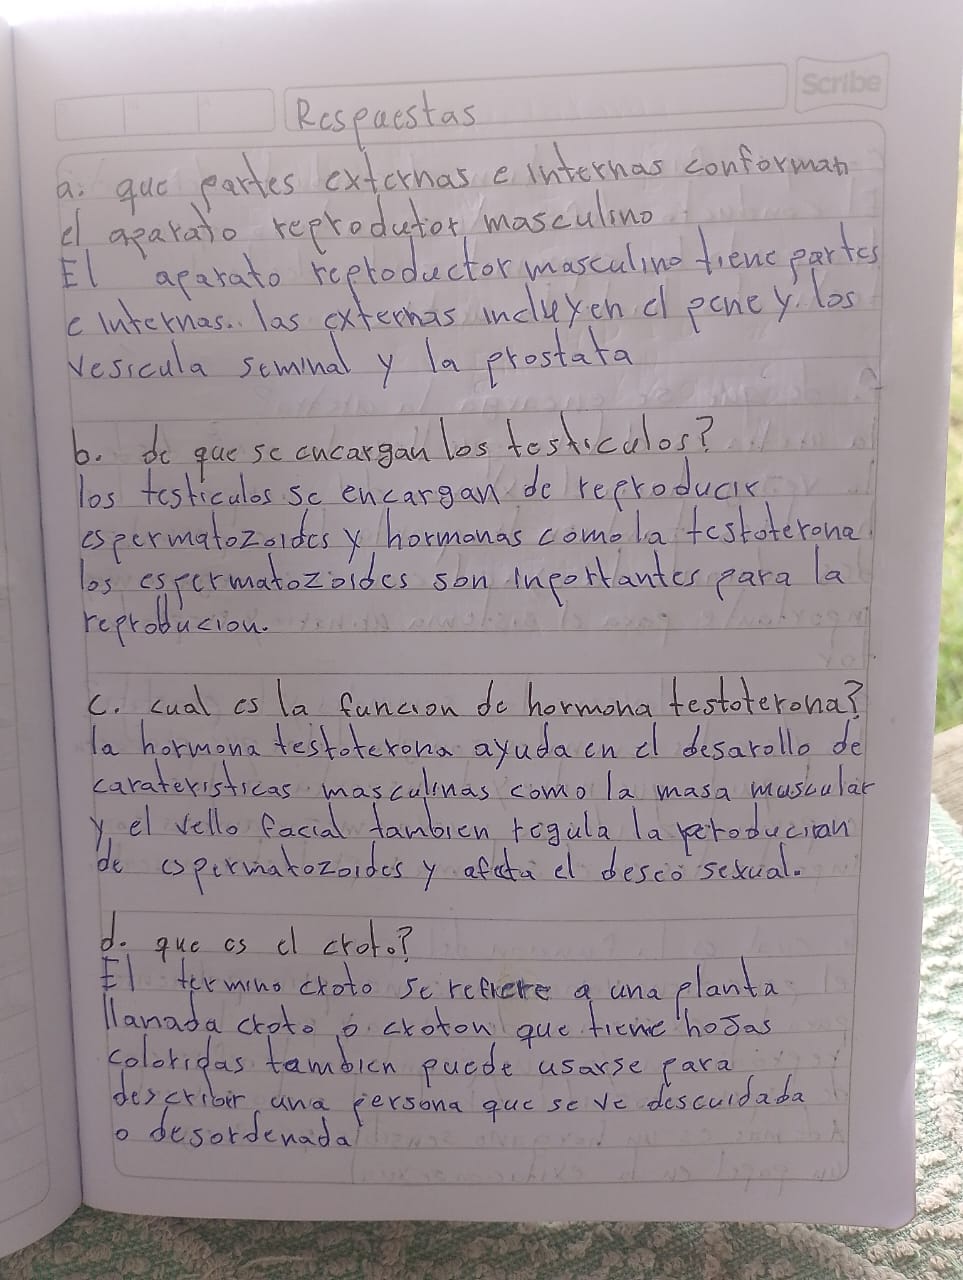 Scribe
Respuestas
a. que partes externas e internas conforman
el aparato reprodutor masculino
El aparato reproductor masculino tiene partes
e internas.. las externas incluyen el pene y los
vesicula seminal y la prostata
b. de que se encargan los testiculos?
los testiculos se encargan de reproducir
espermatozoides y hormonas como la testoterona
los espermatozoides son inportantes para la
reproducion.
c. cual es la funcion de hormona testoterona?
la hormona testoterona ayuda en el desarollo de
carateristicas masculinas como la masa muscular
y el vello facial tambien regula la reproducion
de espermatozoides y afeta el deseo sexual.
d. que es el croto?
El termino croto se refiere a una planta
llanada croto o croton que tiene hojas
coloridas tambien puede usarse para
describir una persona que se ve descuidada
o desordenada